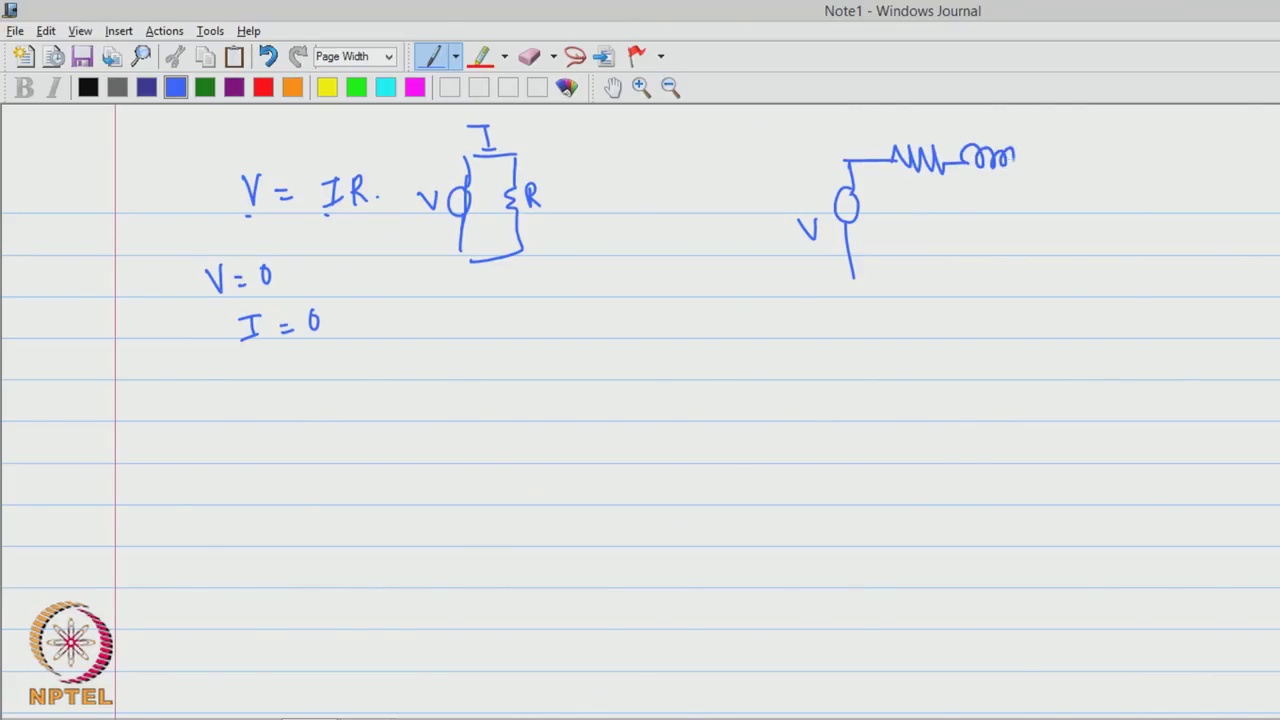 Note1 - Windows Journal
File Edit View Insert Actions Tools Help
Page Width
B I
I
V = IR.
V
R
V = 0
I = 0
V
NPTEL